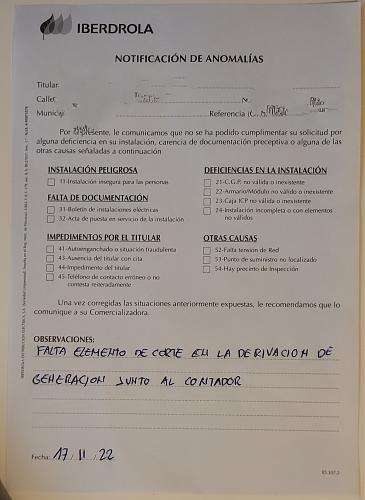 IBERDROLA
NOTIFICACIÓN DE ANOMALÍAS
Titular:
Calle:
Nº
Municipi
Referencia
Por la presente, le comunicamos que no se ha podido cumplimentar su solicitud por
alguna deficiencia en su instalación, carencia de documentación preceptiva o alguna de las
otras causas señaladas a continuación
INSTALACIÓN PELIGROSA
11-Instalación insegura para las personas
FALTA DE DOCUMENTACIÓN
31-Boletín de instalaciones eléctricas
32-Acta de puesta en servicio de la instalación
IMPEDIMENTOS POR EL TITULAR
41-Autoenganchado o situación fraudulenta
43-Ausencia del titular con cita
44-Impedimento del titular
45-Teléfono de contacto erróneo o no
contesta reiteradamente
DEFICIENCIAS EN LA INSTALACIÓN
21-C.G.P. no válida o inexistente
22-Armario/Módulo no válido o inexistente
23-Caja ICP no válida o inexistente
24-Instalación incompleta o con elementos
no válidos
OTRAS CAUSAS
52-Falta tensión de Red
53-Punto de suministro no localizado
54-Hay precinto de Inspección
Una vez corregidas las situaciones anteriormente expuestas, le recomendamos que lo
comunique a su Comercializadora.
OBSERVACIONES:
FALTA ELEMENTO DE CORTE EN LA DERIVACION DE
GENERACION JUNTO AL CONTADOR
Fecha: 17 / 11 / 22